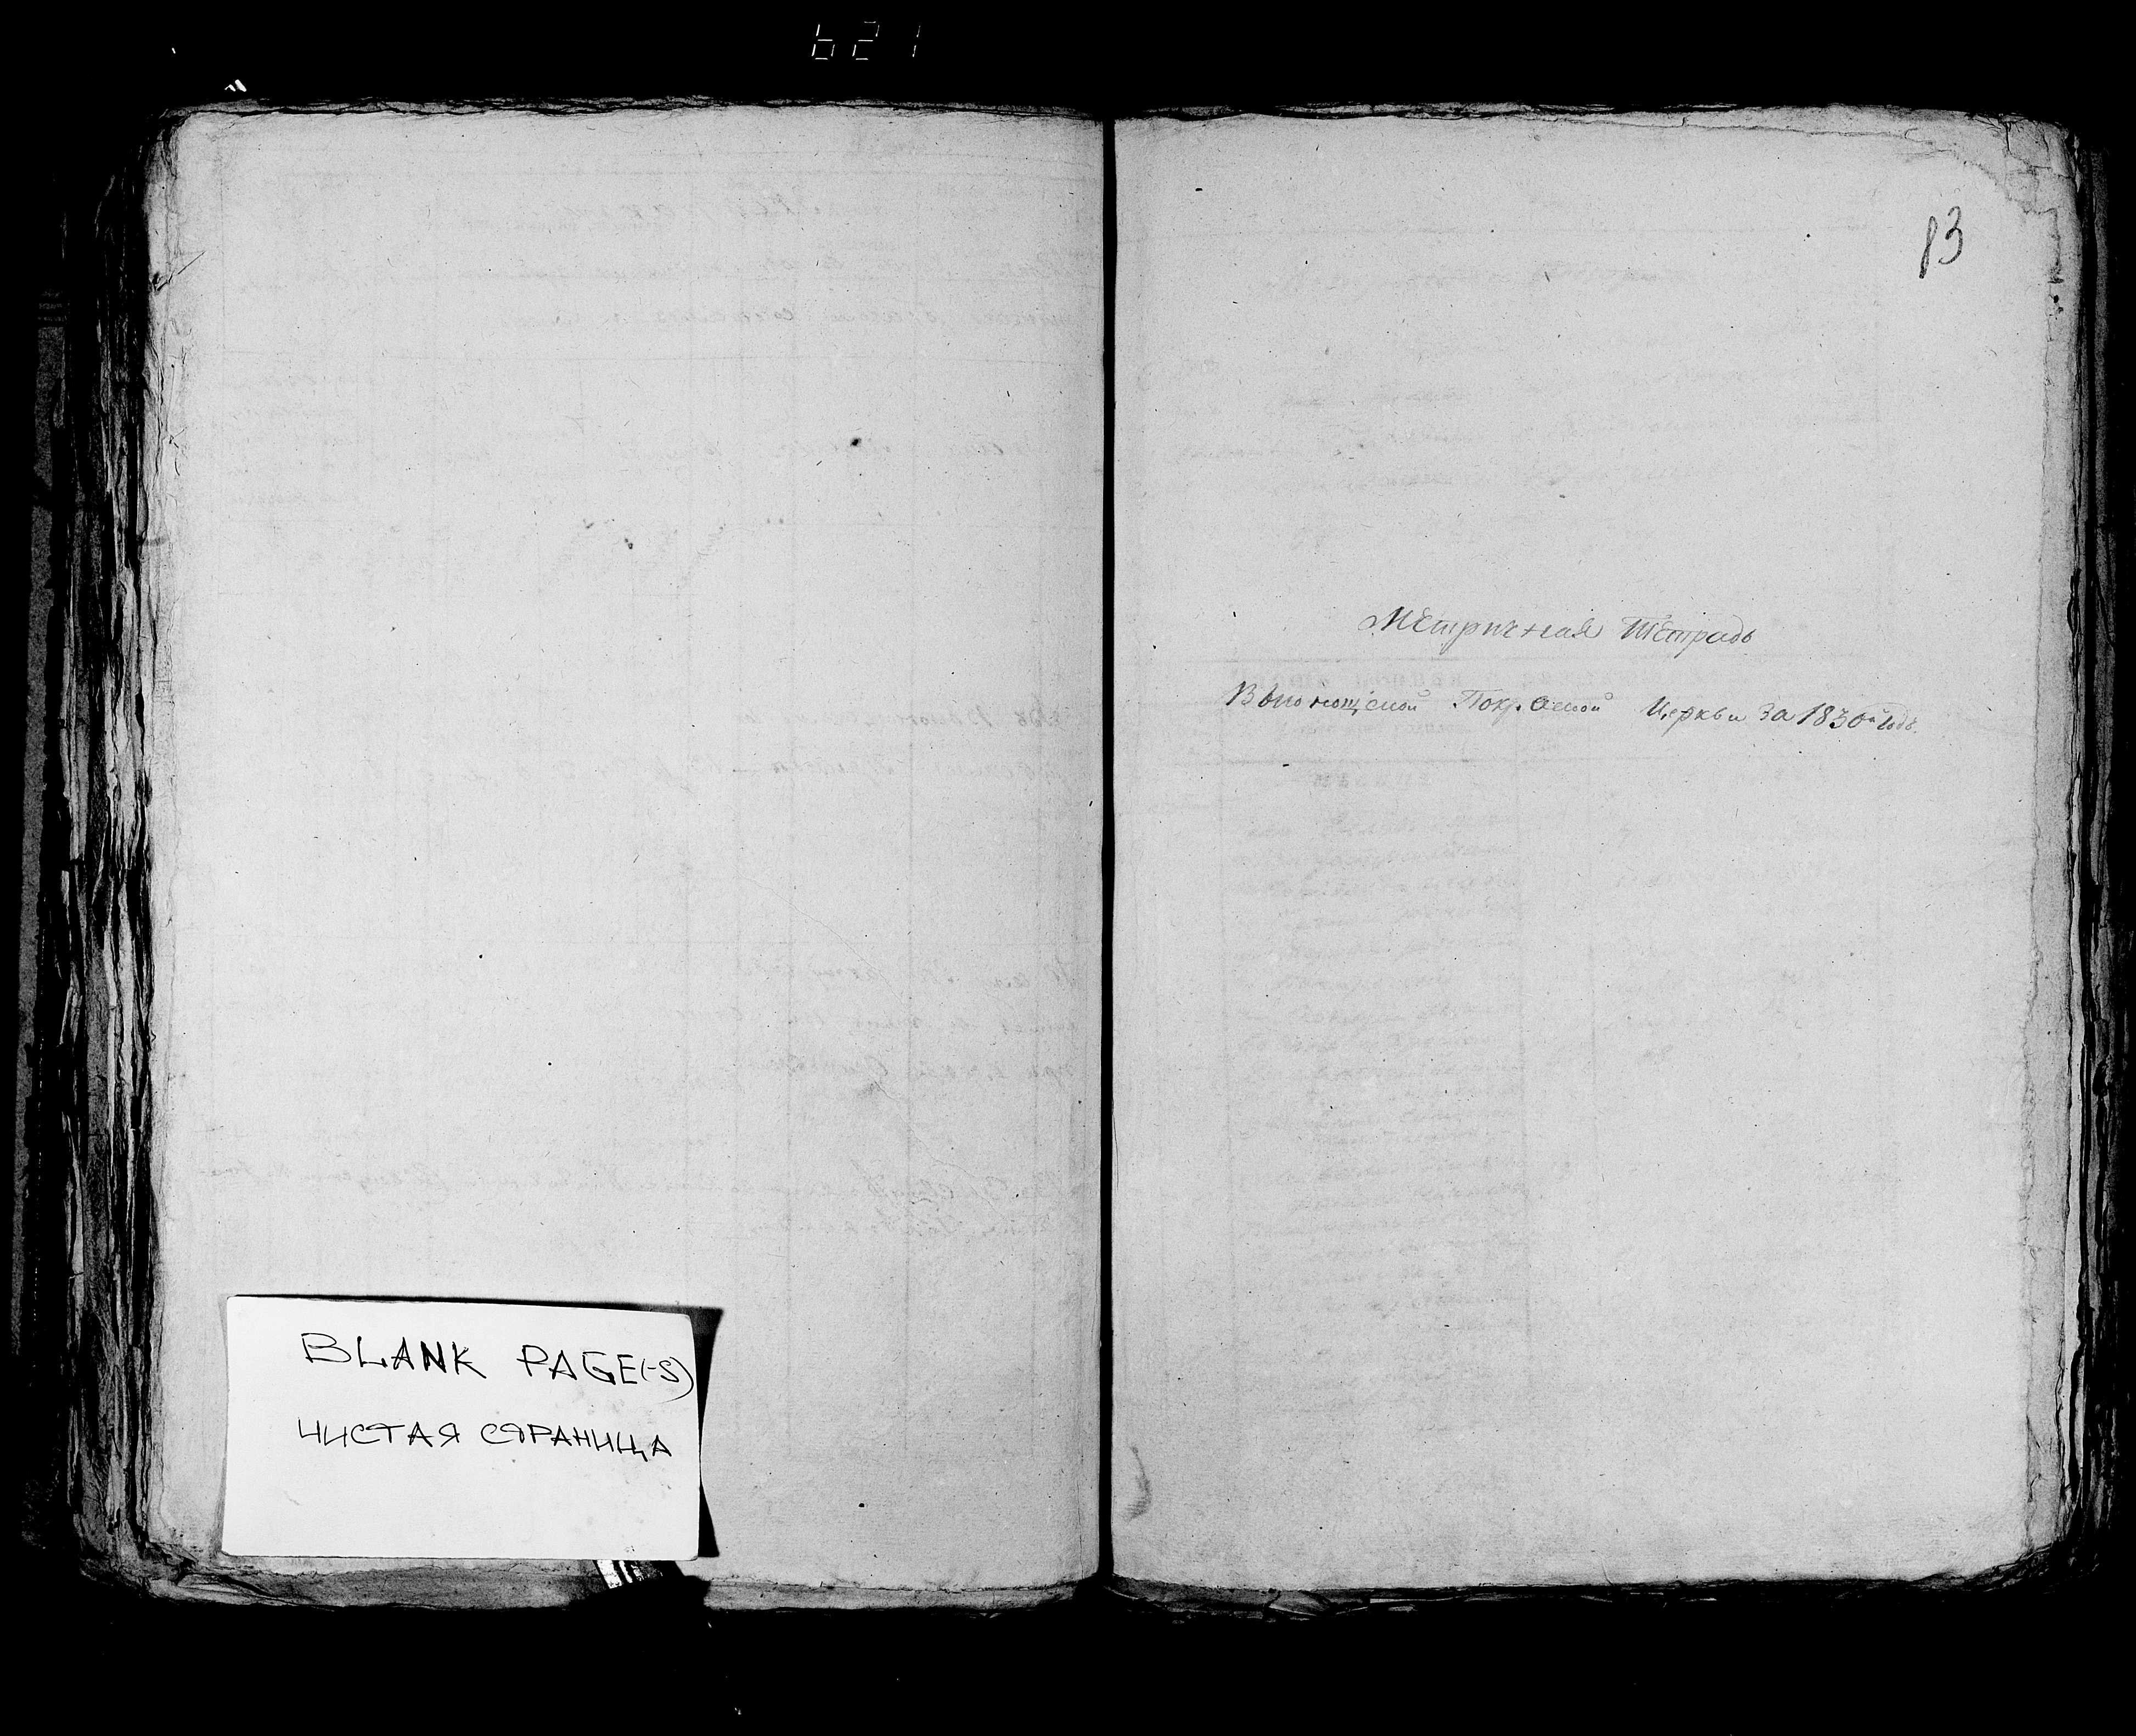 621
BLANK PAGE(-S)
ЧИСТАЯ СТРАНИЦА
83
Метричная тетрадь
Покровской Церкви за 1830й годъ.